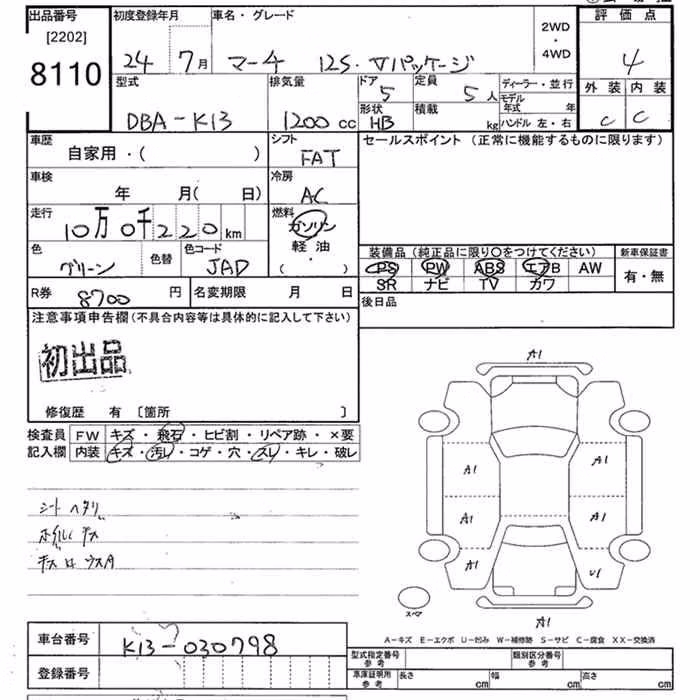 出品番号 初度登録年月 車名・グレード 評価点
[2202] 2WD
・
8110 24 7月 マーチ 12S・Vパッケージ 4WD 4
型式 排気量 ドア 定員 ディーラー・並行 外装 内装
5 5人 モデル年式 年
DBA-K13 1200cc 形状 積載 C C
HB kg ハンドル 左・右
車歴 シフト セールスポイント(正常に機能するものに限ります)
自家用・( ) FAT
車検 冷房
年 月( 日) AC
走行 燃料
10万0千220km ガソリン
色 色替 色コード 軽油 装備品(純正品に限り○をつけてください) 新車保証書
グリーン JAD ( ・ ) PS PW ABS エアB AW 有・無
SR ナビ TV カワ
R券 8700円 名変期限 月 日 後日品
注意事項申告欄(不具合内容等は具体的に記入して下さい)
初出品
A1
修復歴 有 [箇所 ]
検査員 FW キズ・飛石・ヒビ割・リペア跡・×要
記入欄 内装 キズ・汚レ・コゲ・穴・スレ・キレ・破レ
A1 A1
シートヘタリ
A1 A1
ホイルキズ
A1 U1
スペア
A1
A-キズ E-エクボ U-凹み W-補修跡 S-サビ C-腐食 XX-交換済
車台番号 K13-030798
型式指定番号 参考 類別区分番号 参考
登録番号 車庫証明用 参考 長さ cm 幅 cm 高さ cm